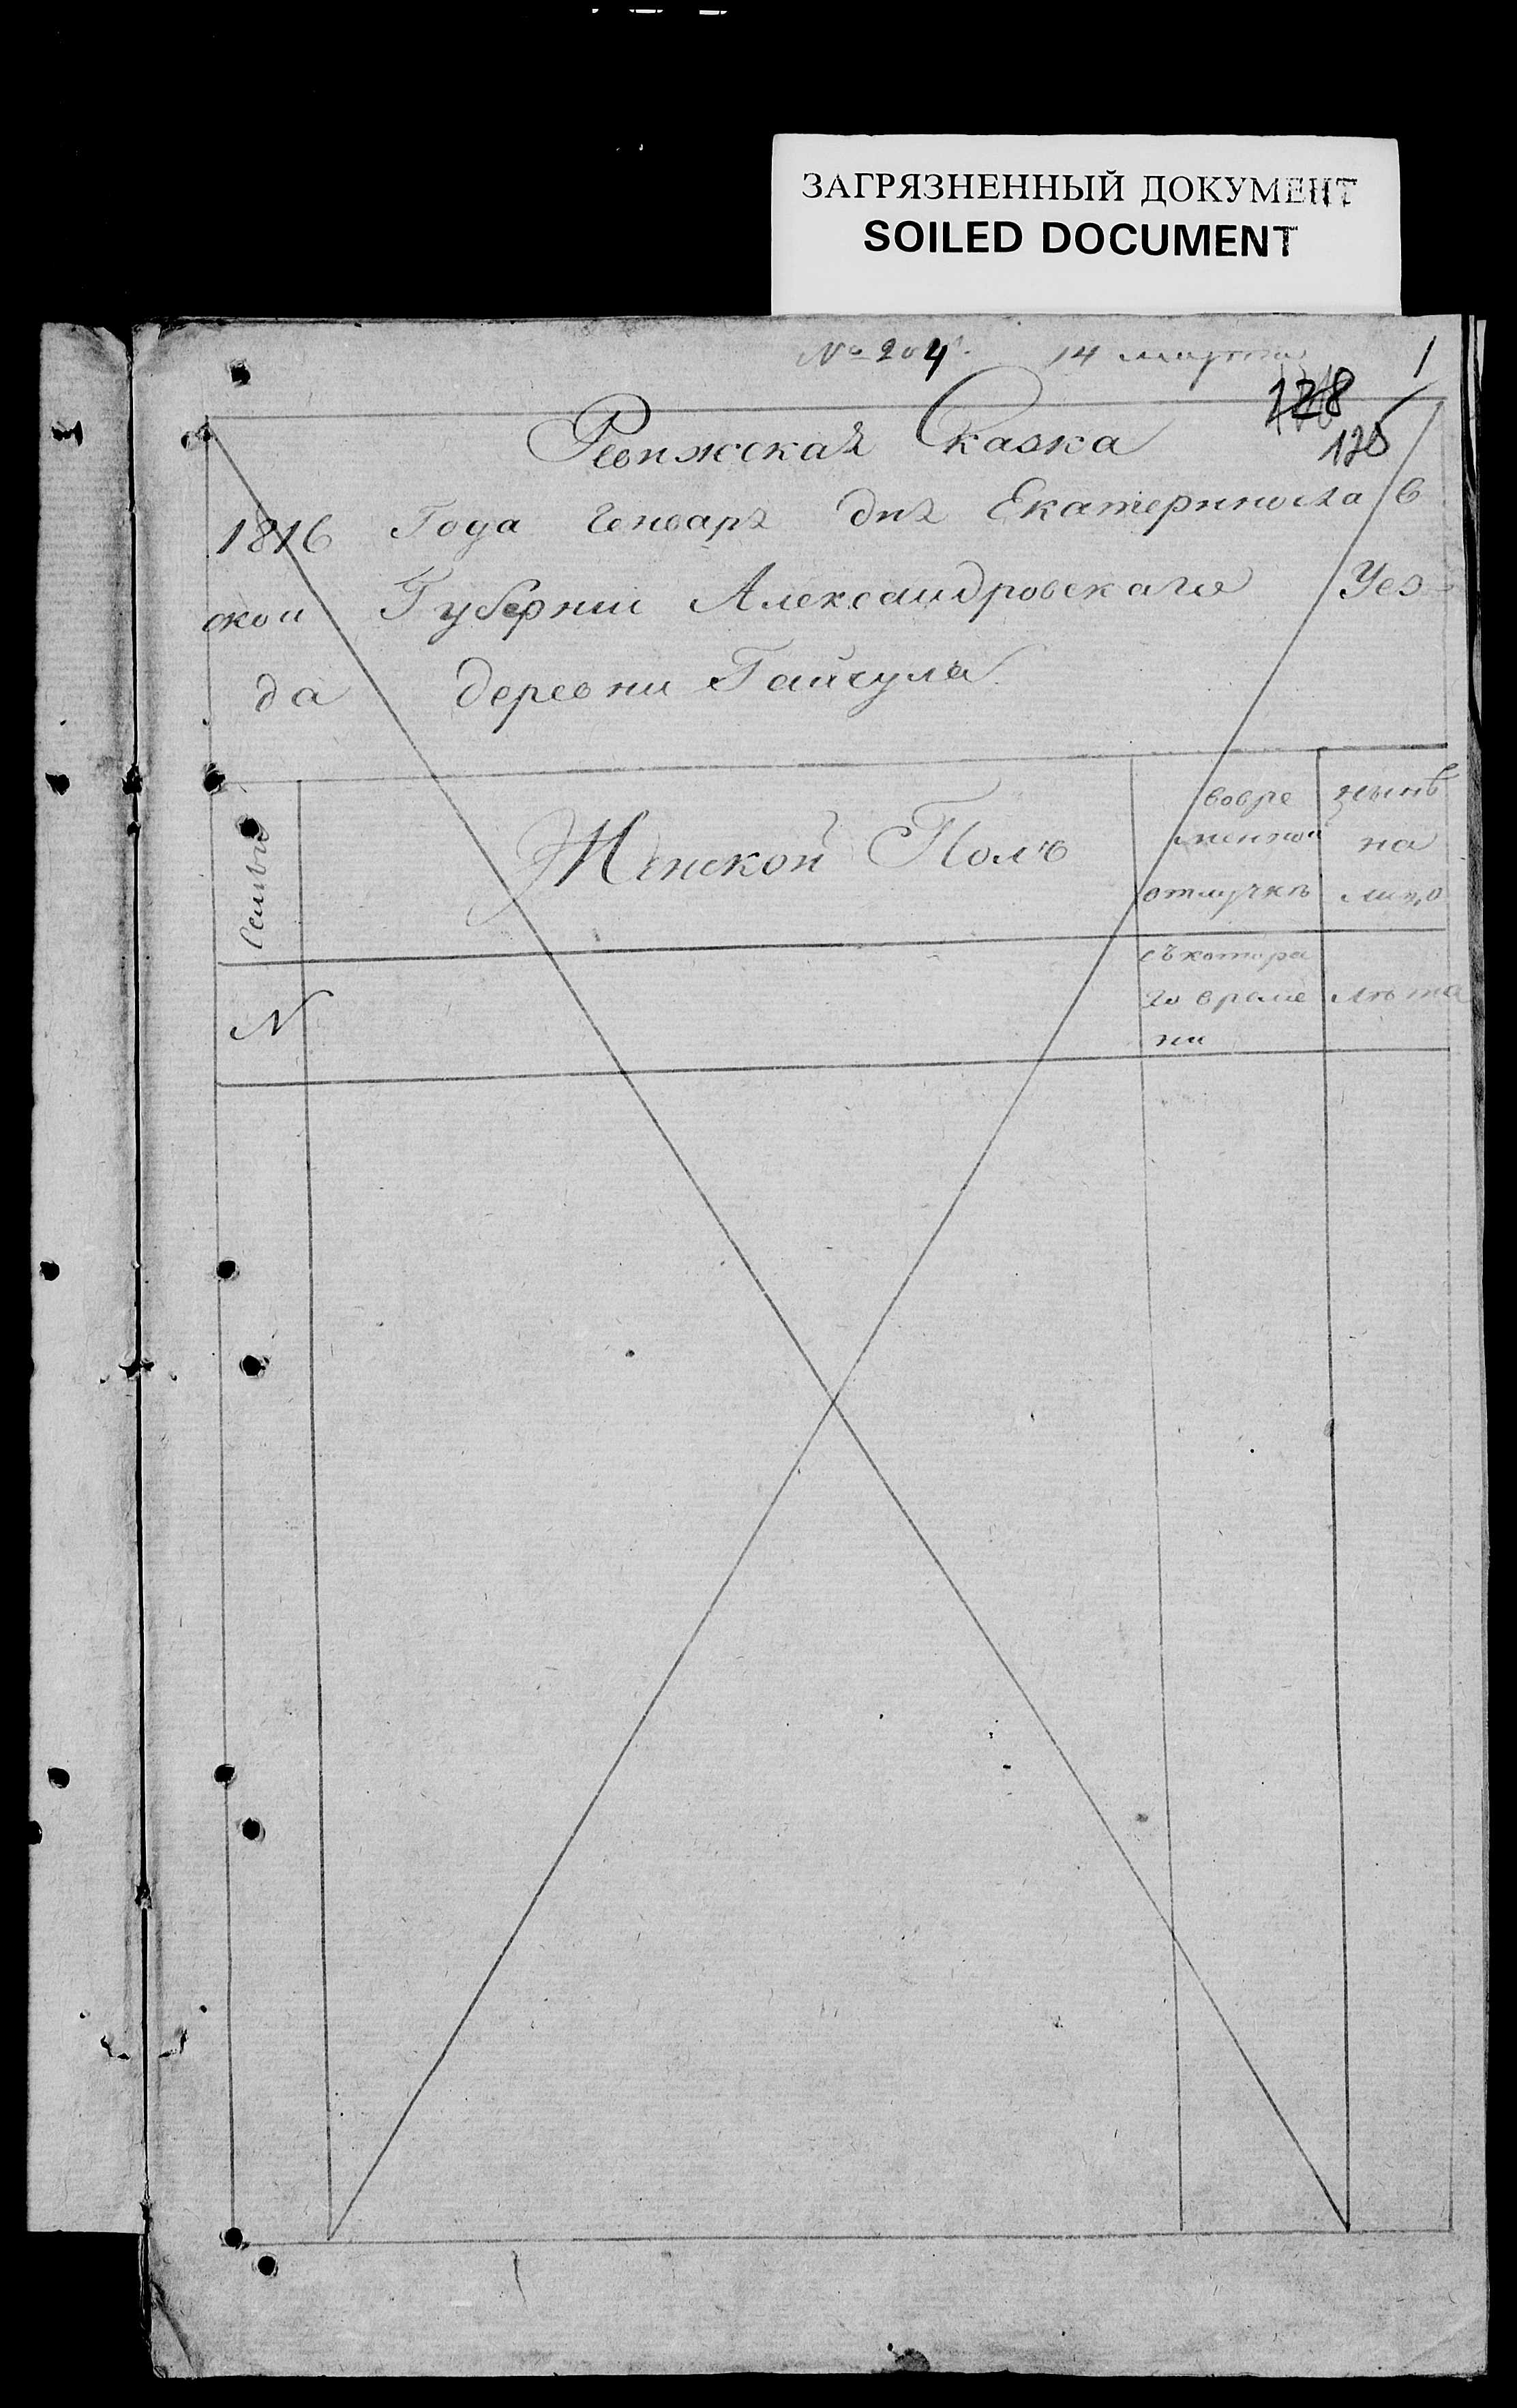 ЗАГРЯЗНЕННЫЙ ДОКУМЕНТ
SOILED DOCUMENT
№ 204. 14 марта 1
128
Ревижская Сказка
1816 Года Генваря дня Екатеринослав
ской Губернии Александровскаго Уез=
да деревни Гайчула
Семьи
Женской Полъ
вовре
менной
отлучкѣ
нынѣ
на
лицо
N
съкотора
го време
ни
лѣта